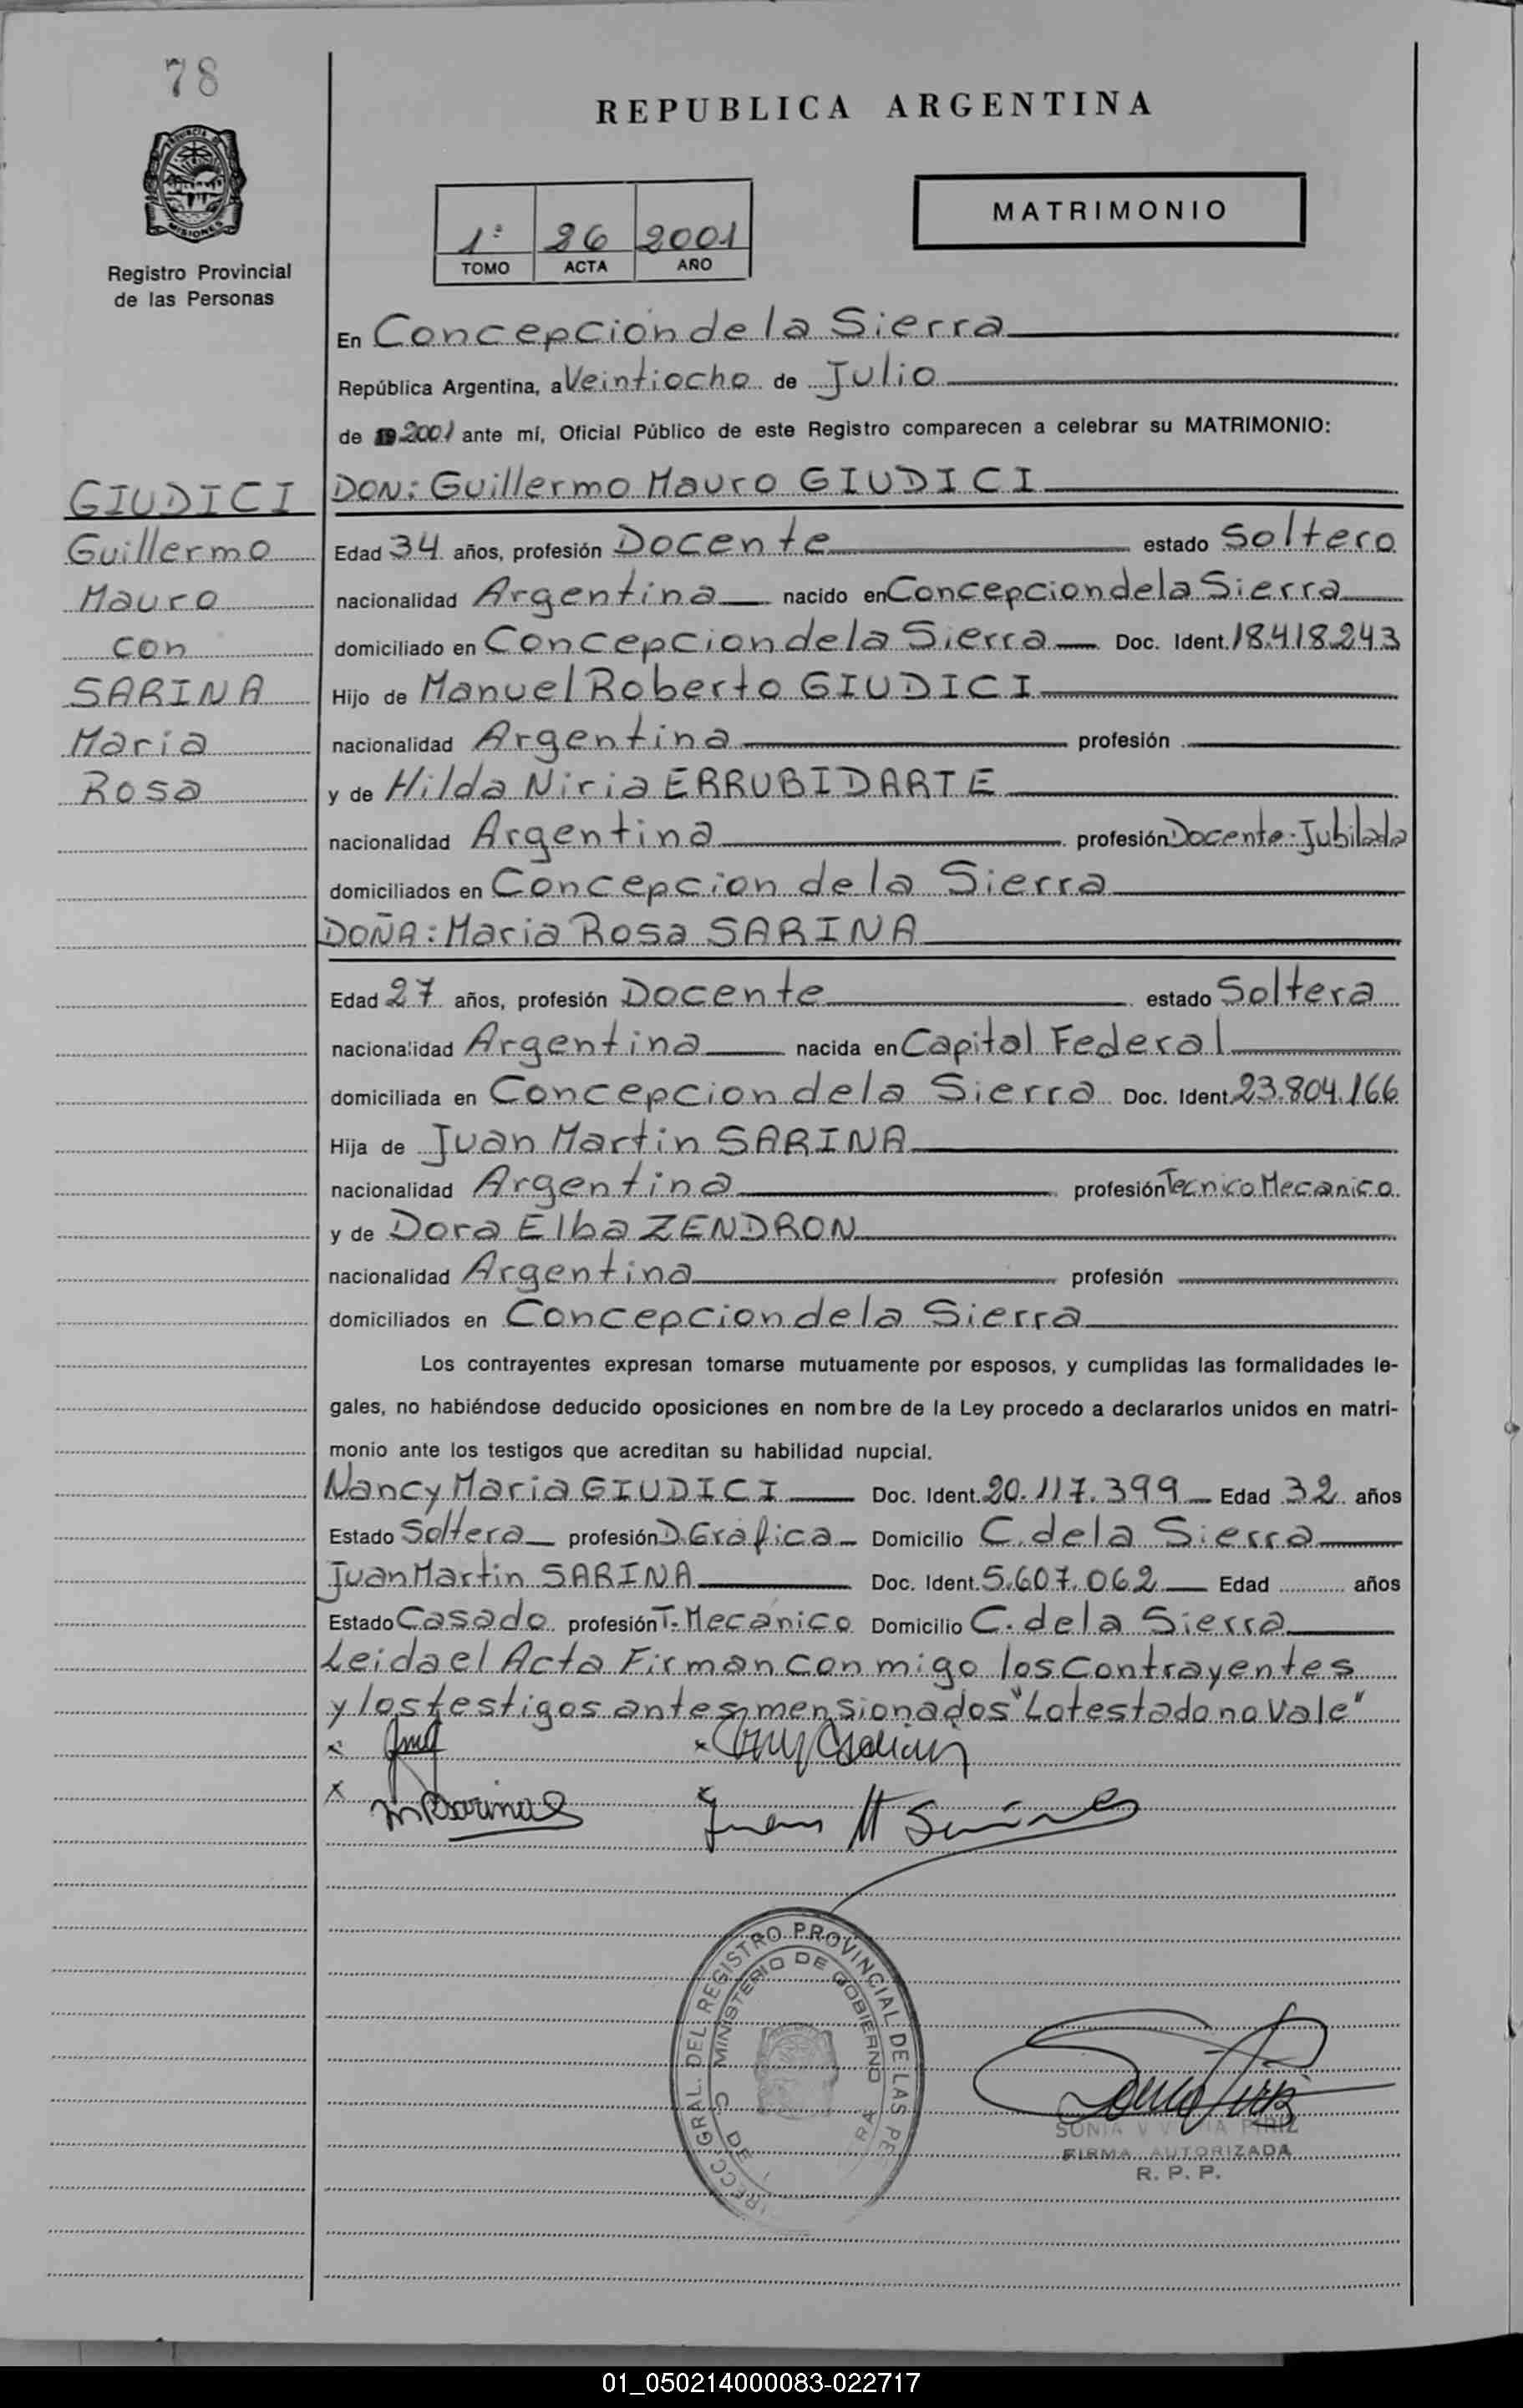 78
MISIONES
Registro Provincial
de las Personas
REPUBLICA ARGENTINA
MATRIMONIO
1º 26 2001
TOMO ACTA AÑO
En Concepción de la Sierra
República Argentina, a Veintiocho de Julio
de 19 2001 ante mí, Oficial Público de este Registro comparecen a celebrar su MATRIMONIO:
GIUDICI
Guillermo
Mauro
con
SARINA
Maria
Rosa
DON: Guillermo Mauro GIUDICI
Edad 34 años, profesión Docente estado Soltero
nacionalidad Argentina nacido en Concepcion de la Sierra
domiciliado en Concepcion de la Sierra Doc. Ident. 18.418.243
Hijo de Manuel Roberto GIUDICI
nacionalidad Argentina profesión
y de Hilda Niria ERRUBIDARTE
nacionalidad Argentina profesión Docente-Jubilada
domiciliados en Concepcion de la Sierra
DOÑA: Maria Rosa SARINA
Edad 27 años, profesión Docente estado Soltera
nacionalidad Argentina nacida en Capital Federal
domiciliada en Concepcion de la Sierra Doc. Ident. 23.804.166
Hija de Juan Martin SARINA
nacionalidad Argentina profesión Tecnico Mecanico
y de Dora Elba ZENDRON
nacionalidad Argentina profesión
domiciliados en Concepcion de la Sierra
Los contrayentes expresan tomarse mutuamente por esposos, y cumplidas las formalidades le-
gales, no habiéndose deducido oposiciones en nombre de la Ley procedo a declararlos unidos en matri-
monio ante los testigos que acreditan su habilidad nupcial.
Nancy Maria GIUDICI Doc. Ident. 20.117.399 Edad 32 años
Estado Soltera profesión D.Gráfica Domicilio C. de la Sierra
Juan Martin SARINA Doc. Ident. 5.607.062 Edad años
Estado Casado profesión T. Mecánico Domicilio C. de la Sierra
Leida el Acta Firman con migo los Contrayentes
y los testigos antes mensionados "Lo testado no Vale"
x x
x x
Juan M Sarina
RECC GRAL. DEL REGISTRO PROVINCIAL DE LAS PE
MINISTERIO DE GOBIERNO
SONIA PIRIZ
FIRMA AUTORIZADA
R. P. P.
01_050214000083-022717